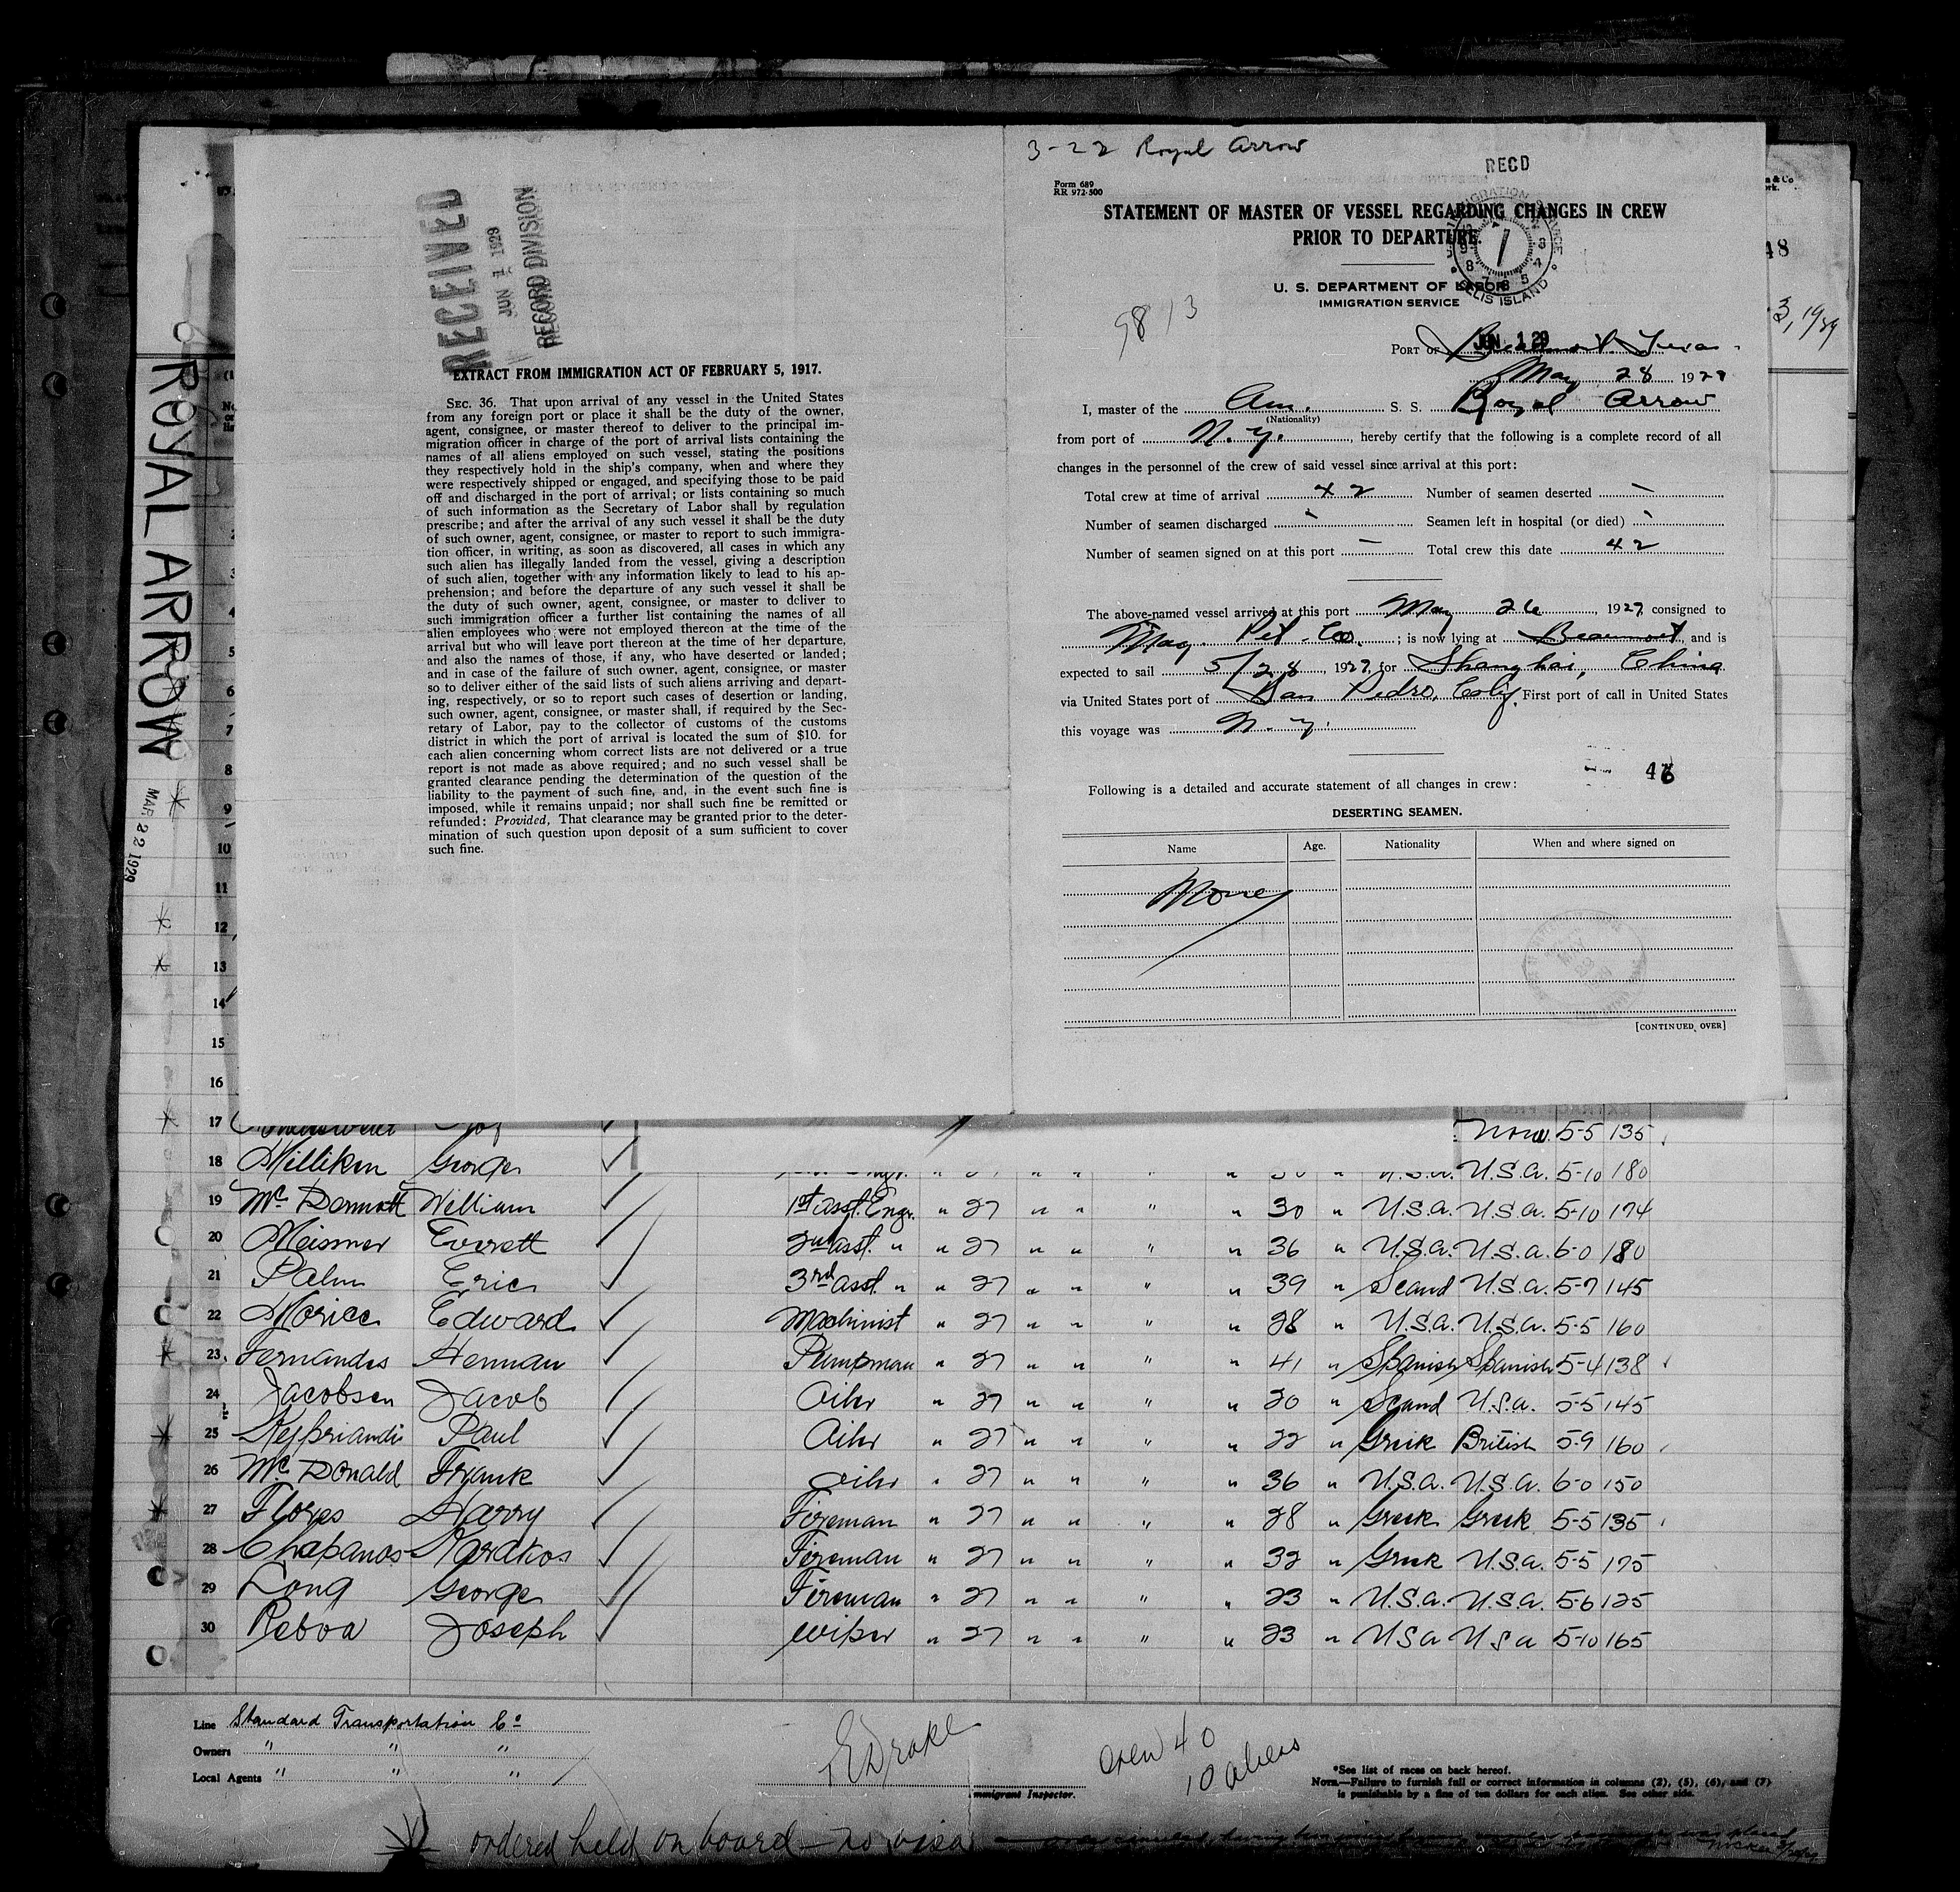 ROYAL ARROW
MAR 22 1929
RECEIVED
JUN 1 1929
RECORD DIVISION
EXTRACT FROM IMMIGRATION ACT OF FEBRUARY 5, 1917.
SEC. 36. That upon arrival of any vessel in the United States
from any foreign port or place it shall be the duty of the owner,
agent, consignee, or master thereof to deliver to the principal im-
migration officer in charge of the port of arrival lists containing the
names of all aliens employed on such vessel, stating the positions
they respectively hold in the ship's company, when and where they
were respectively shipped or engaged, and specifying those to be paid
off and discharged in the port of arrival; or lists containing so much
of such information as the Secretary of Labor shall by regulation
prescribe; and after the arrival of any such vessel it shall be the duty
of such owner, agent, consignee, or master to report to such immigra-
tion officer, in writing, as soon as discovered, all cases in which any
such alien has illegally landed from the vessel, giving a description
of such alien, together with any information likely to lead to his ap-
prehension; and before the departure of any such vessel it shall be
the duty of such owner, agent, consignee, or master to deliver to
such immigration officer a further list containing the names of all
alien employees who were not employed thereon at the time of the
arrival but who will leave port thereon at the time of her departure,
and also the names of those, if any, who have deserted or landed;
and in case of the failure of such owner, agent, consignee, or master
so to deliver either of the said lists of such aliens arriving and depart-
ing, respectively, or so to report such cases of desertion or landing,
such owner, agent, consignee, or master shall, if required by the Sec-
retary of Labor, pay to the collector of customs of the customs
district in which the port of arrival is located the sum of $10. for
each alien concerning whom correct lists are not delivered or a true
report is not made as above required; and no such vessel shall be
granted clearance pending the determination of the question of the
liability to the payment of such fine, and, in the event such fine is
imposed, while it remains unpaid; nor shall such fine be remitted or
refunded: Provided, That clearance may be granted prior to the deter-
mination of such question upon deposit of a sum sufficient to cover
such fine.
3-22 Royal Arrow
RECD
Form 689
RR 972-500
STATEMENT OF MASTER OF VESSEL REGARDING CHANGES IN CREW
PRIOR TO DEPARTURE.
U. S. DEPARTMENT OF LABOR
IMMIGRATION SERVICE
ELLIS ISLAND
9813
JUN 1 29
PORT OF Beaumont Texas
May 28 1929
I, master of the Am. S. S. Royal Arrow
(Nationality)
from port of N. Y. , hereby certify that the following is a complete record of all
changes in the personnel of the crew of said vessel since arrival at this port:
Total crew at time of arrival 42 Number of seamen deserted -
Number of seamen discharged - Seamen left in hospital (or died) -
Number of seamen signed on at this port - Total crew this date 42
The above-named vessel arrived at this port May 26, 1929 consigned to
Mag. Pet. Co. ; is now lying at Beaumont, and is
expected to sail 5/28, 1929, for Shanghai, China
via United States port of San Pedro, Calif. First port of call in United States
this voyage was N. Y.
Following is a detailed and accurate statement of all changes in crew:
DESERTING SEAMEN.
Name Age. Nationality When and where signed on
None
[CONTINUED OVER]
5
6
7
8
9
10
11
12
13
14
15
16
17 5-5 135
18 Milliken George U.S.A. U.S.A. 5-10 180
19 McDermott William 1st asst. Engr. " 27 " " " " 30 " U.S.A. U.S.A. 5-10 174
20 Meisner Everett 2nd asst. " " 27 " " " " 36 " U.S.A. U.S.A. 6-0 180
21 Palm Eric 3rd asst. " " 27 " " " " 39 " Scand U.S.A. 5-7 145
22 Morice Edward Machinist " 27 " " " " 28 " U.S.A. U.S.A. 5-5 160
23 Fernandes Herman Pumpman " 27 " " " " 41 " Spanish Spanish 5-4 138
24 Jacobsen Jacob Oiler " 27 " " " " 20 " Scand U.S.A. 5-5 145
25 Kypriandi Paul Oiler " 27 " " " " 22 " Greek British 5-9 160
26 McDonald Frank Oiler " 27 " " " " 36 " U.S.A. U.S.A. 6-0 150
27 Flores Harry Fireman " 27 " " " " 28 " Greek Greek 5-5 135
28 Chapanos Kardkos Fireman " 27 " " " " 32 " Greek U.S.A. 5-5 175
29 Long George Fireman " 27 " " " " 23 " U.S.A. U.S.A. 5-6 125
30 Reboa Joseph Wiper " 27 " " " " 23 " USA USA 5-10 165
Line Standard Transportation Co
Owners " " "
Local Agents " " "
E Drake
Immigrant Inspector.
Crew 40
10 aliens
*See list of races on back hereof.
NOTE.—Failure to furnish full or correct information in columns (2), (5), (6), and (7)
is punishable by a fine of ten dollars for each alien. See other side.
ordered held on board - no visa